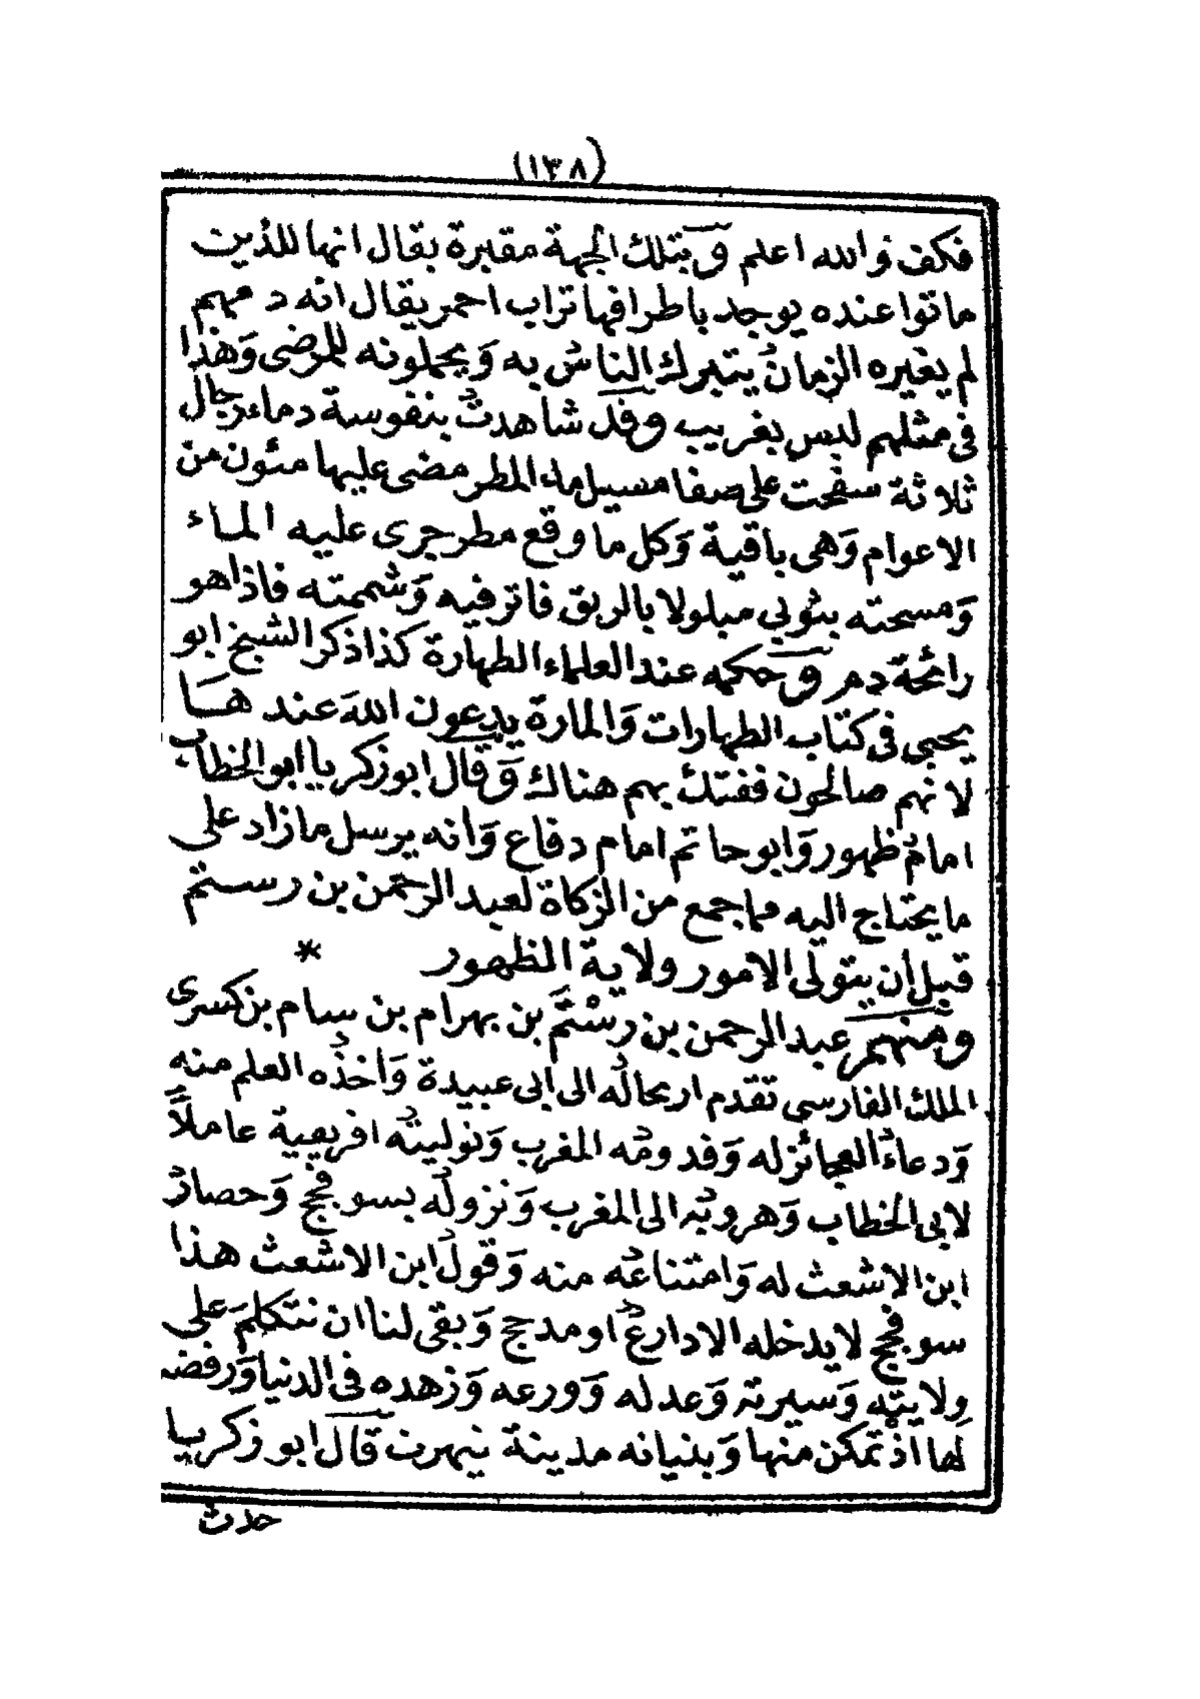 (١٣٨)
فكفوا والله اعلم وبتلك الجهة مقبرة يقال انها للذين
ماتوا عنده يوجد باطرافها تراب احمر يقال انه دمهم
لم يغيره الزمان يتبرك الناس به وَيحملونه للمرضى وَهذا
فى مثلهم ليس بغريب وقد شاهدت بنفوسة دماء رجال
ثلاثة سفحت على صفا مسيل ماء المطر مضى عليها مئون من
الاعوام وَهى باقية وَكل ما وقع مطر جرى عليه الماء
وَمسحته بثوبي مبلولا بالريق فاثر فيه وَشممته فاذا هو
رائحة دم وحكمه عند العلماء الطهارة كذا ذكر الشيخ ابو
يحيى فى كتاب الطهارات وَالمارة يدعون الله عند هــا
لانهم صالحون ففتك بهم هناك وَقال ابو زكريا ابو الخطاب
امام ظهور وَابو حاتم امام دفاع وَانه يرسل ما زاد على
ما يحتاج اليه مما جمع من الزكاة لعبد الرحمن بن رستم
قبل أن يتولى الامور ولاية الظهور *
ومنهم عبد الرحمن بن رسْتَم بن بهرام بن سام بن كسرى
الملك الفارسي تقدم ارتحاله الى ابى عبيدة وَاخذه العلم منه
وَدعاء العجائز له وَقدومه المغرب وَتوليته افريقية عاملاً
لابى الخطاب وَهروبه الى المغرب وَنزوله بسوفجج وَحصار
ابن الاشعث له وَامتناعه منه وَقول ابن الاشعث هذا
سوفجج لا يدخله الا دارع او مدجج وَبقى لنا ان نتكلمَ على
ولايته وَسيرته وَعدله وَورعه وَزهده فى الدنيا وَرفضه
لها اذْ تمكن منها وَبنيانه مدينة تيهرت قال ابو زكريا
حدث